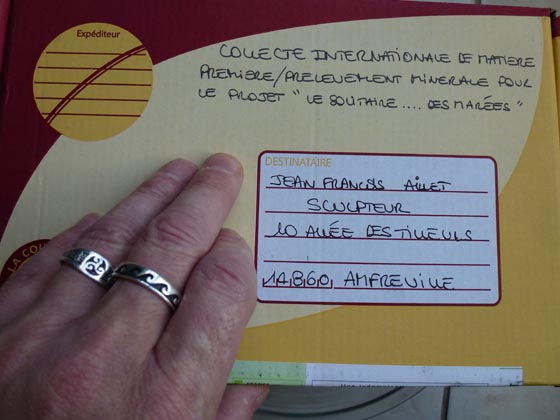 Expéditeur
COLLECTE INTERNATIONALE DE MATIERE
PREMIERE/PRELEVEMENT MINERALE POUR
LE PROJET " LE SOLITAIRE .... DES MARÉES "
DESTINATAIRE
JEAN FRANCOIS AILLET
SCULPTEUR
10 ALLÉE DES TILLEULS
14860 AMFREVILLE
LA